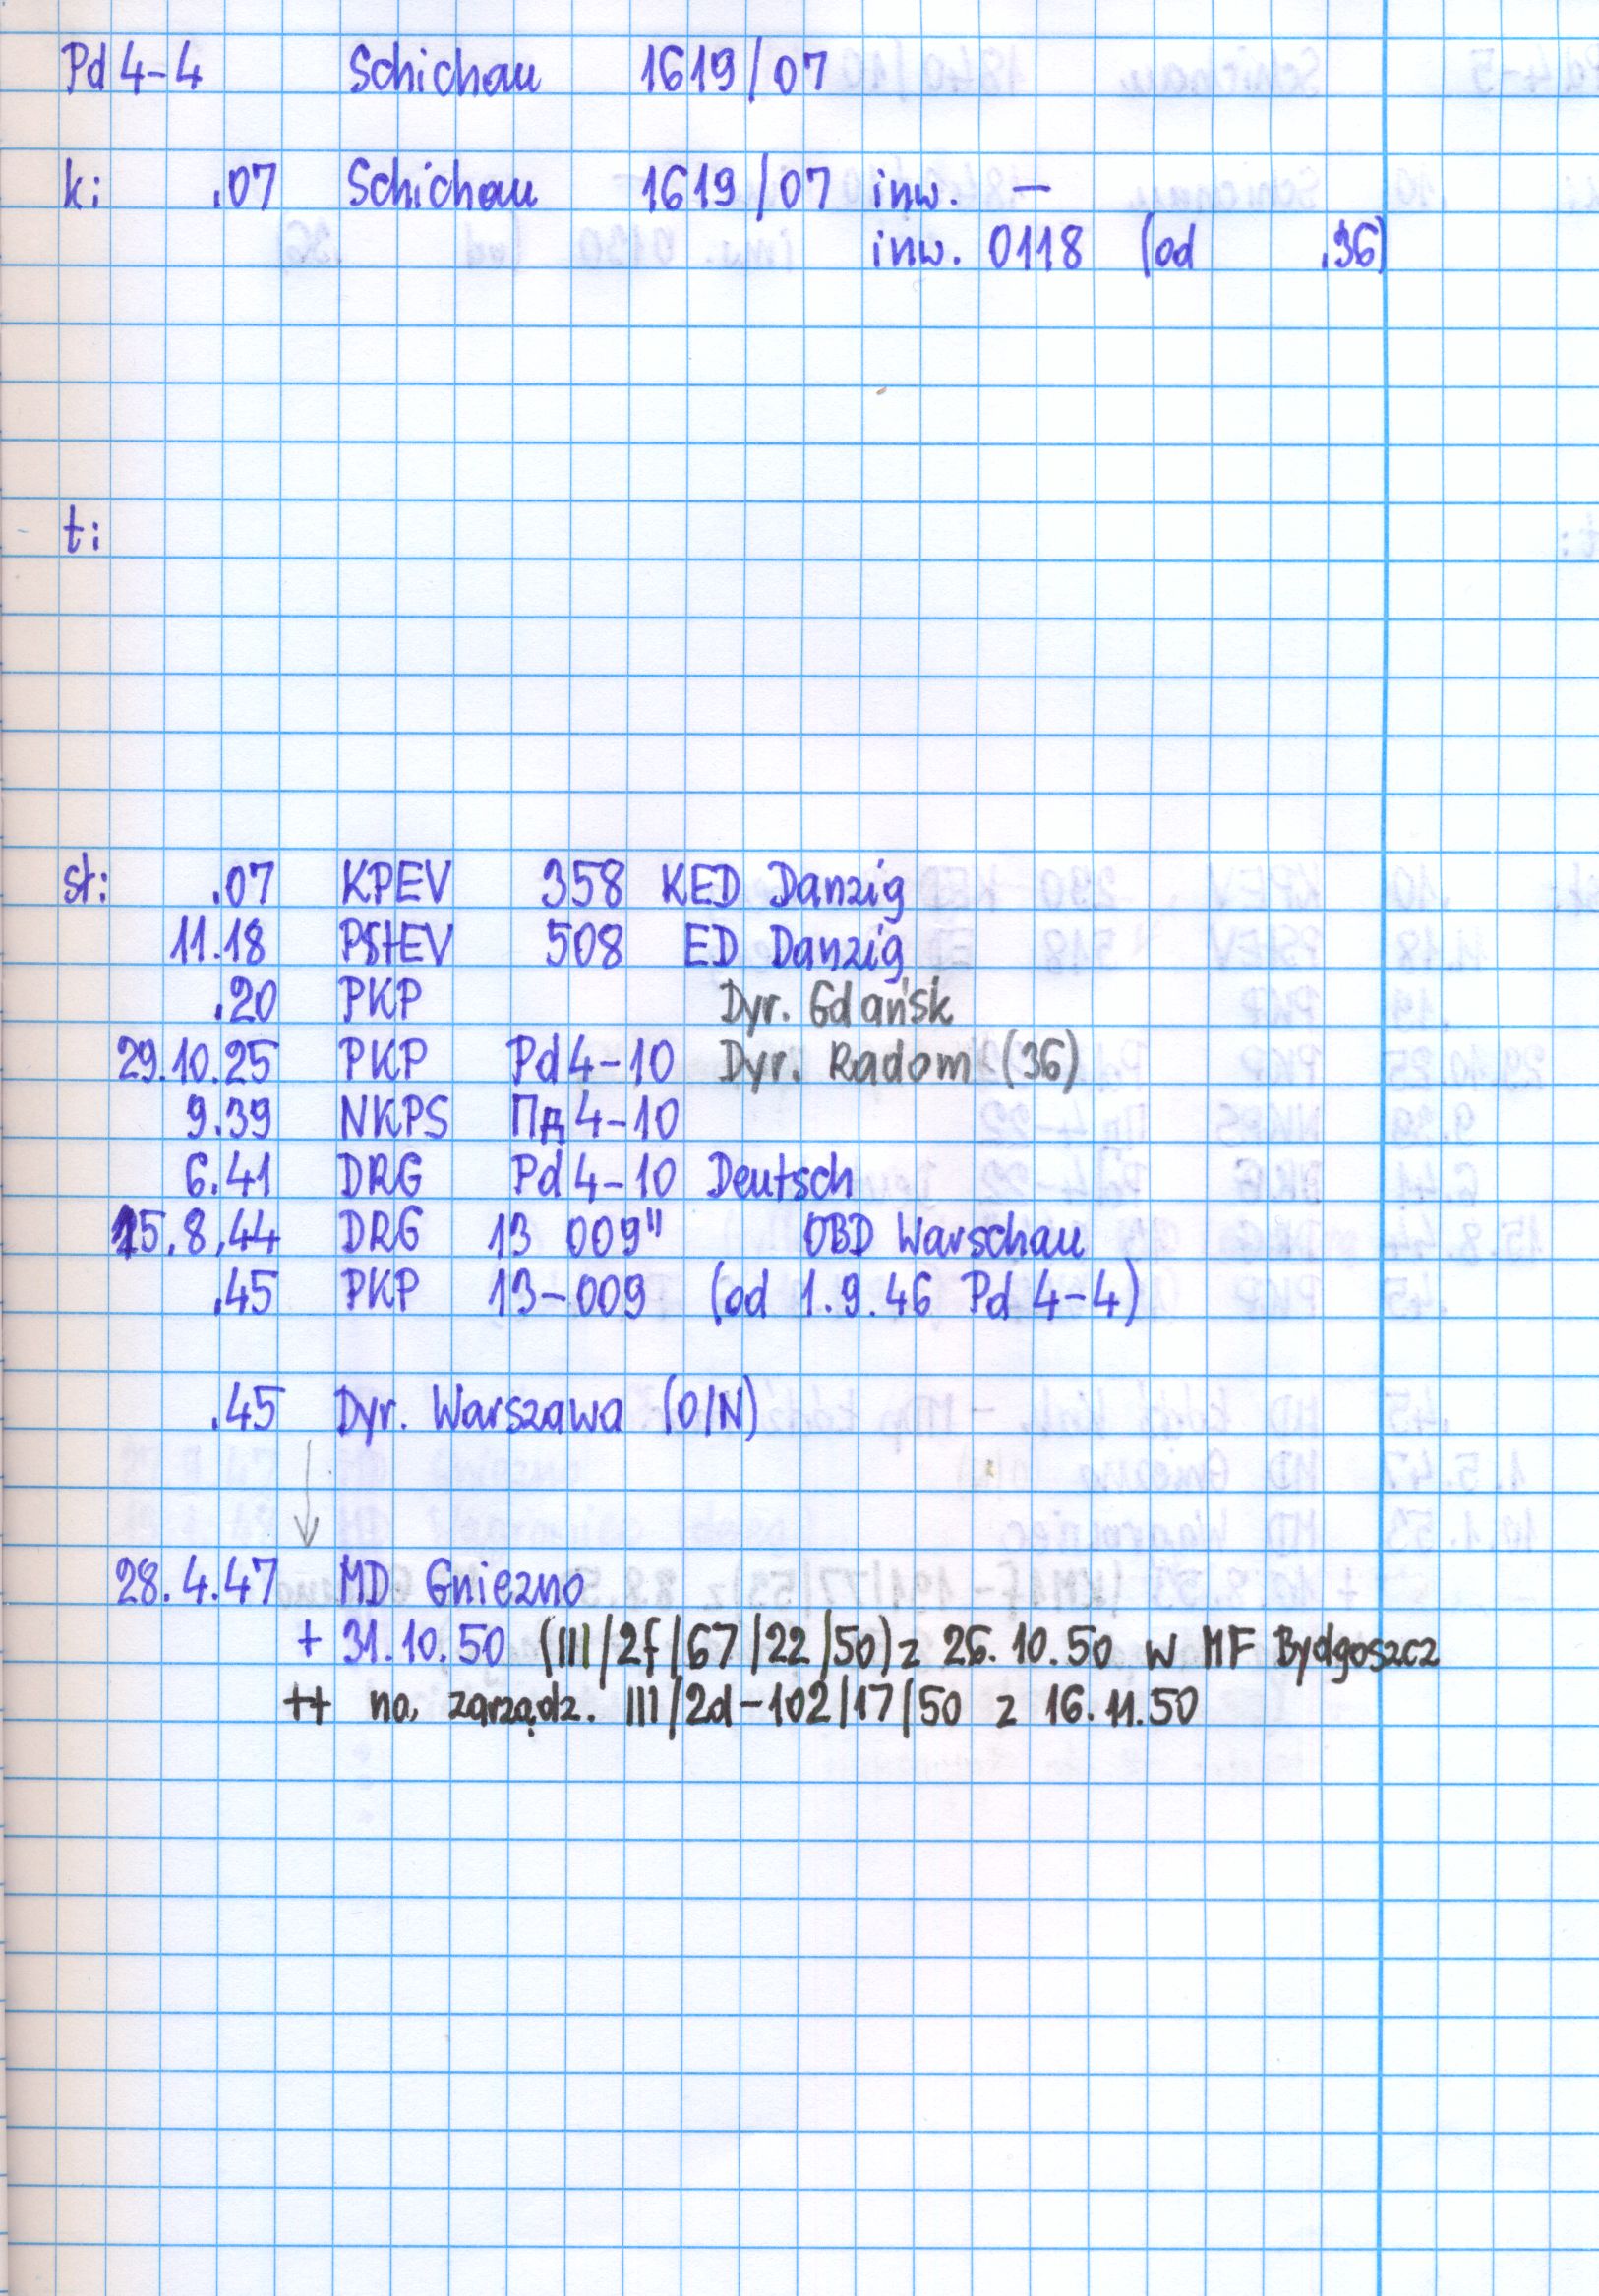 Pd 4-4 Schichau 1619/07
k: .07 Schichau 1619/07 inw. —
inw. 0118 (od .36)
t:
st: .07 KPEV 358 KED Danzig
11.18 PStEV 508 ED Danzig
.20 PKP Dyr. Gdańsk
29.10.25 PKP Pd 4-10 Dyr. Radom (36)
9.39 NKPS Пд 4-10
6.41 DRG Pd 4-10 Deutsch
15.8.44 DRG 13 009" OBD Warschau
.45 PKP 13-009 (od 1.9.46 Pd 4-4)
.45 Dyr. Warszawa (O/N)
28.4.47 MD Gniezno
+ 31.10.50 (III/2f/67/22/50) z 26.10.50 w MF Bydgoszcz
++ na zarządz. III/2d-102/17/50 z 16.11.50